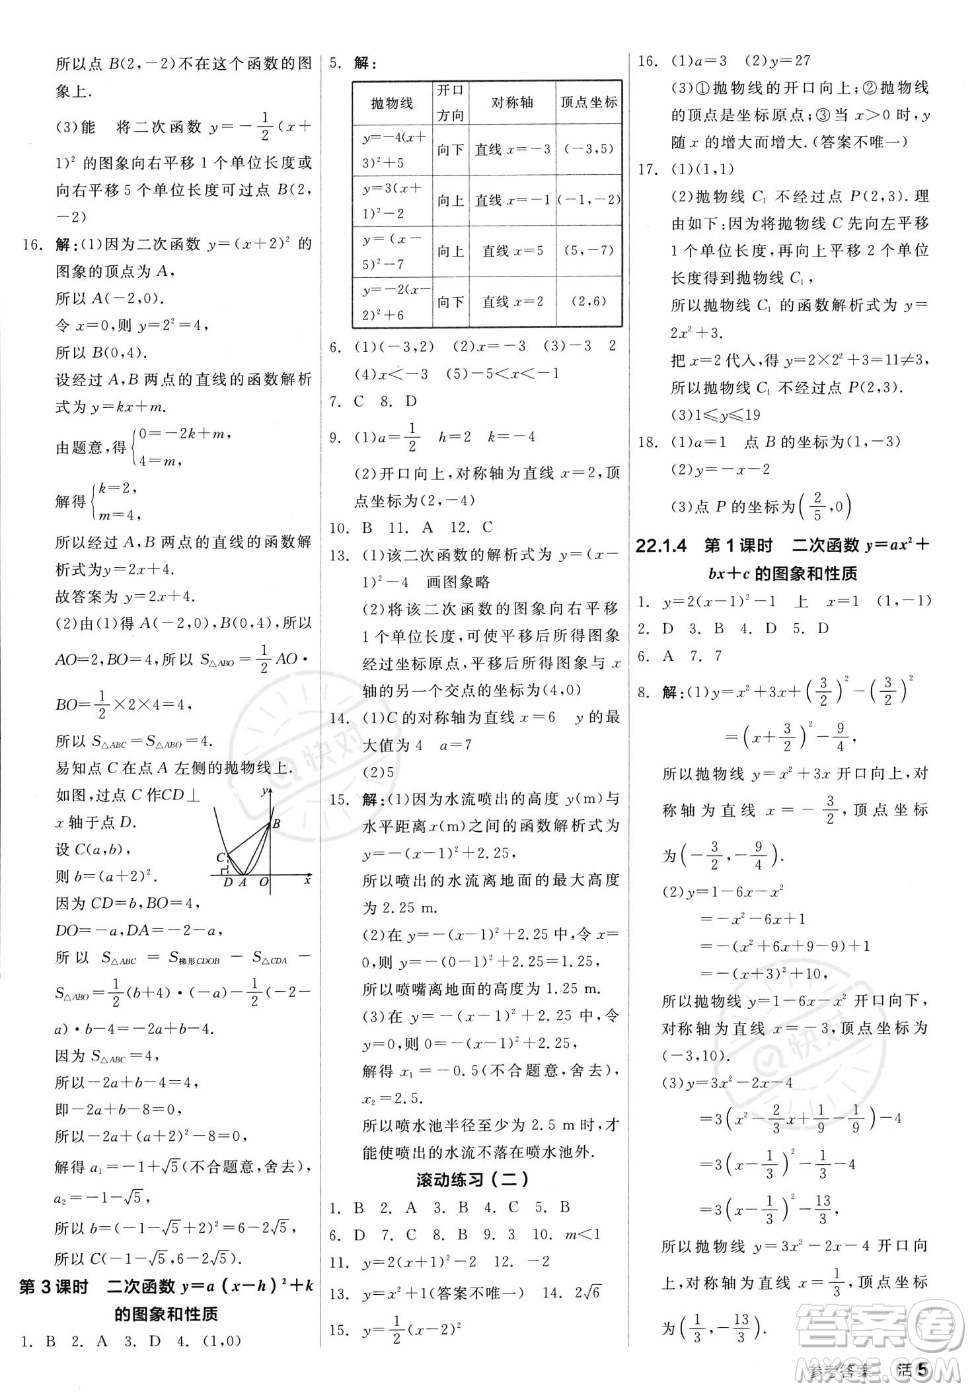 所以点 B(2,-2)不在这个函数的图
象上.
(3)能　将二次函数 y=-1/2(x+
1)² 的图象向右平移 1 个单位长度或
向右平移 5 个单位长度可过点 B(2,
-2)
16. 解:(1)因为二次函数 y=(x+2)² 的
图象的顶点为 A,
所以 A(-2,0).
令 x=0,则 y=2²=4,
所以 B(0,4).
设经过 A,B 两点的直线的函数解析
式为 y=kx+m.
由题意,得{0=-2k+m,
4=m.
解得{k=2,
m=4,
所以经过 A,B 两点的直线的函数解
析式为 y=2x+4.
故答案为 y=2x+4.
(2)由(1)得 A(-2,0),B(0,4),所以
AO=2,BO=4,所以 S△ABO=1/2 AO·
BO=1/2×2×4=4,
所以 S△ABC=S△ABO=4.
易知点 C 在点 A 左侧的抛物线上.
如图,过点 C 作CD⊥
x 轴于点 D.
设 C(a,b),
则 b=(a+2)².
因为 CD=b,BO=4,
DO=-a,DA=-2-a,
所以 S△ABC = S梯形CDOB - S△CDA -
S△ABO=1/2(b+4)·(-a)-1/2(-2-
a)·b-4=-2a+b-4.
因为 S△ABC=4,
所以-2a+b-4=4,
即-2a+(a+2)²=8,
所以 b=(a+2)²=2a+8,
解得 a₁=-1+√5(不合题意,舍去),
a₂=-1-√5,
所以 b=(-1-√5+2)²=6-2√5,
所以 C(-1-√5,6-2√5).
第 3 课时　二次函数 y=a(x-h)²+k
的图象和性质
1. B 2. A 3. D 4. (1,0)
y
B
C
D A O x
5. 解:
抛物线 开口方向 对称轴 顶点坐标
y=-4(x+3)²+5 向下 直线 x=-3 (-3,5)
y=3(x+1)²-2 向上 直线 x=-1 (-1,-2)
y=(x-5)²-7 向上 直线 x=5 (5,-7)
y=-2(x-2)²+6 向下 直线 x=2 (2,6)
6. (1)(-3,2) (2)x=-3 (3)-3 2
(4)x<-3 (5)-5<x<-3
7. C 8. D
9. (1)a=1/2 h=2 k=-4
(2)开口向上,对称轴为直线 x=2,顶
点坐标为(2,-4)
10. B 11. A 12. C
13. (1)该二次函数的解析式为 y=(x-
1)²-4　画图象略
(2)将该二次函数的图象向右平移
1 个单位长度,可使平移后所得图象
经过坐标原点,平移后所得图象与 x
轴的另一个交点的坐标为(4,0)
14. (1)C 的对称轴为直线 x=6 y 的最
大值为 4 a=7
(2)5
15. 解:(1)因为水流喷出的高度 y(m)与
水平距离x(m)之间的函数解析式为
y=-(x-1)²+2.25,
所以喷出的水流离地面的最大高度
为 2.25 m.
(2)在 y=-(x-1)²+2.25 中,令 x=0,
得 y=-(0-1)²+2.25=1.25.
所以喷嘴离地面的高度为 1.25 m.
(3)在 y=-(x-1)²+2.25 中,令
y=0,则 0=-(x-1)²+2.25,
解得 x₁=-0.5(不合题意,舍去),
x₂=2.5.
所以喷水池半径至少为 2.5 m 时,才
能使喷出的水流不落在喷水池外.
滚动练习(二)
1. B 2. A 3. B 4. C 5. B
6. D 7. C 8. D 9. 3 10. m<1
11. y=x²+1(答案不唯一) 14. 2√6
15. y=1/2(x-2)²
16. (1)a=3 (2)y=27
(3)①抛物线的开口向上;②抛物线
的顶点是坐标原点;③当 x>0 时,y
随 x 的增大而增大.(答案不唯一)
17. (1)(1,1)
(2)抛物线 C₁ 不经过点 P(2,3). 理
由如下:因为抛物线 C 先向左平移
1 个单位长度,再向上平移 2 个单位
长度得到抛物线 C₁,
所以抛物线 C₁ 的函数解析式为 y=
2x²+3.
把 x=2 代入,得 y=2×2²+3=11≠3,
所以抛物线 C₁ 不经过点 P(2,3).
(3)1≤y≤19
18. (1)a=1 点 B 的坐标为(1,-3)
(2)y=-x-2
(3)点 P 的坐标为(2/5,0)
22.1.4　第 1 课时　二次函数 y=ax²+
bx+c 的图象和性质
1. y=2(x-1)²-1 上 x=1 (1,-1)
2. D 3. B 4. D 5. D
6. A 7. 7
8. 解:(1)y=x²+3x+(3/2)²-(3/2)²
=(x+3/2)²-9/4,
所以抛物线 y=x²+3x 开口向上,对
称轴为直线 x=-3/2,顶点坐标
为(-3/2,-9/4).
(2)y=1-6x-x²
=-x²-6x+1
=-(x²+6x+9-9)+1
=-(x+3)²+10,
所以抛物线 y=1-6x-x² 开口向下,
对称轴为直线 x=-3,顶点坐标为
(-3,10).
(3)y=3x²-2x-4
=3(x²-2/3x+1/9-1/9)-4
=3(x-1/3)²-1/3-4
=3(x-1/3)²-13/3,
所以抛物线 y=3x²-2x-4 开口向
上,对称轴为直线 x=1/3,顶点坐标
为(1/3,-13/3).
参考答案 活 5
答案圈
快对
快对